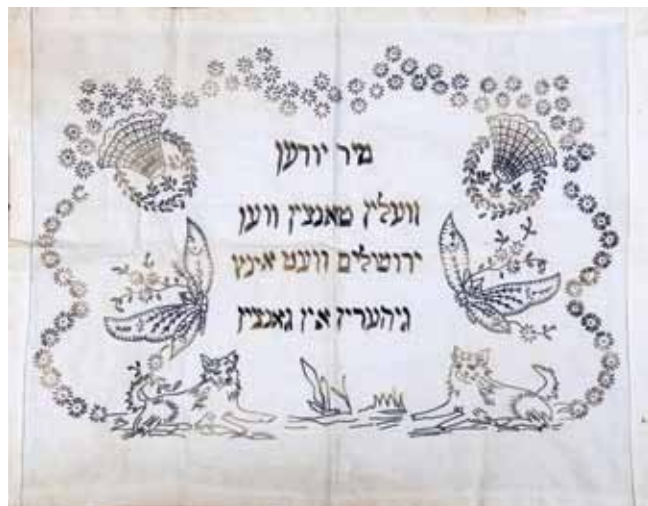 מיר יורען
וועלין טאנצין ווען
ירושלים וועט אינץ
גיהערין אין גאנצין